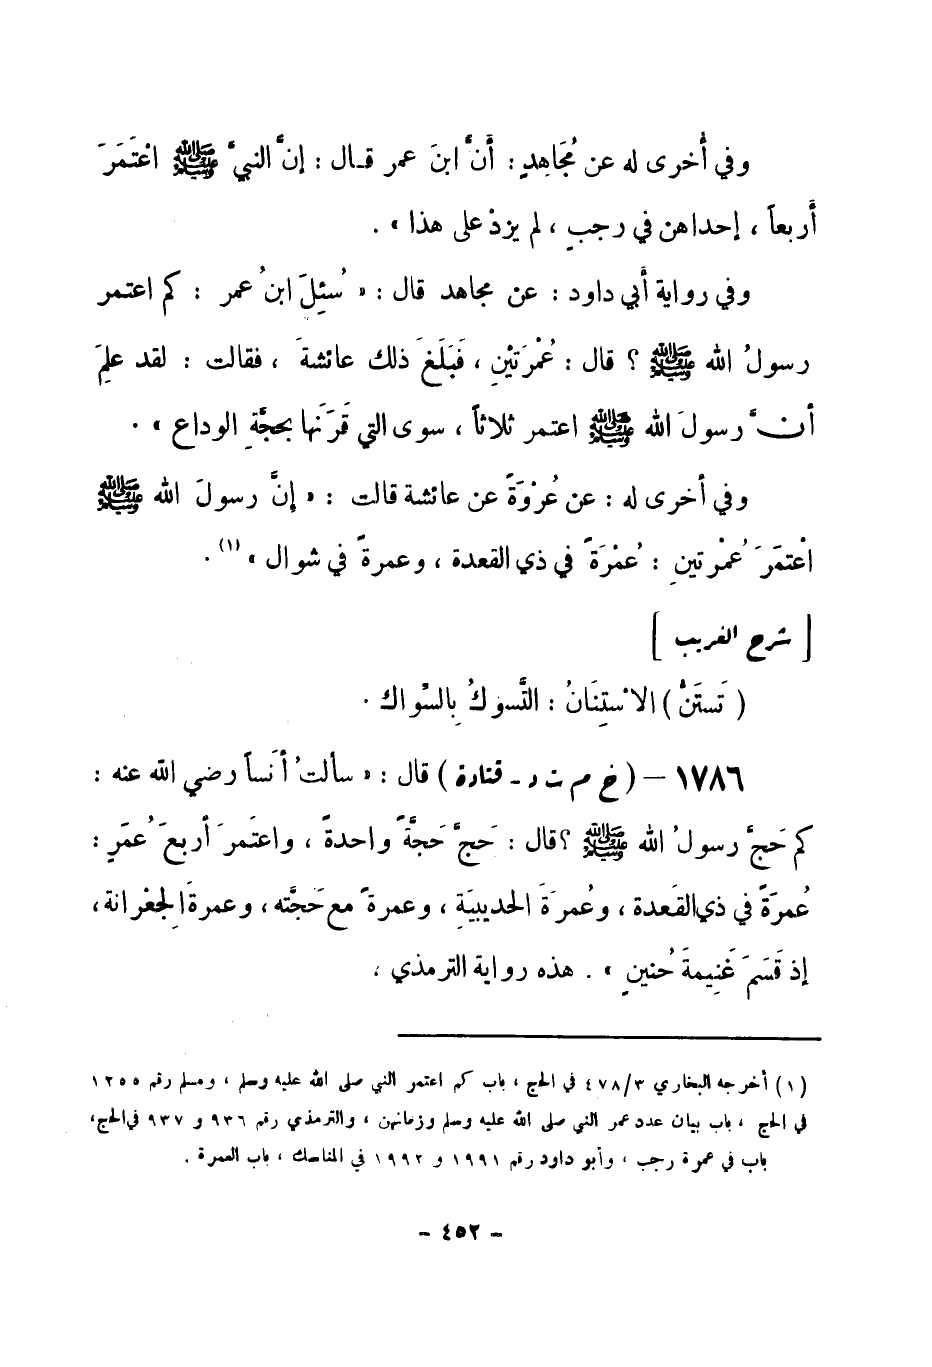 وفي أُخرى له عن مُجَاهِدٍ : أَنَّ ابنَ عمر قـال : إنَّ النبيَّ ﷺ اعْتَمَرَ
أَربعاً ، إحداهن في رجبٍ ، لم يزدْ على هذا » .
وفي رواية أبي داود : عن مجاهد قال : « سُئِلَ ابنُ عمر : كم اعتمر
رسولُ الله ﷺ ؟ قال : عُمْرَتَيْنِ ، فَبَلَغَ ذلك عائشةَ ، فقالت : لقد علِمَ
أنَّ رسولَ الله ﷺ اعتمر ثلاثاً ، سوى التي قَرَنَها بحجَّةِ الوداع » .
وفي أخرى له : عن عُرْوَةَ عن عائشة قالت : « إنَّ رسولَ الله ﷺ
اعْتمَرَ عُمْرتينِ : عُمْرَةً في ذي القعدة ، وعمرةً في شوال » (١) .
[ شرح الغريب ]
( تَستَنُّ ) الاسْتِنَانُ : التَّسوكُ بِالسِّواك .
١٧٨٦ – ( خ م ت د – قتادة ) قال : « سألتُ أنَساً رضي الله عنه :
كم حَجَّ رسولُ الله ﷺ ؟ قال : حَجَّ حَجَّةً واحدةً ، واعتَمرَ أربعَ عُمَرٍ :
عُمرَةً في ذي القَعدة ، وعُمرَةَ الحديبيَةِ ، وعمرةً مع حَجَّته ، وعمرةَ الجِعْرانة ،
إذ قَسَمَ غَنِيمةَ حُنينٍ » . هذه رواية الترمذي ،
(١) أخرجه البخاري ٤٧٨/٣ في الحج ، باب كم اعتمر النبي صلى الله عليه وسلم ، ومسلم رقم ١٢٥٥
في الحج ، باب بيان عدد عمر النبي صلى الله عليه وسلم وزمانهن ، والترمذي رقم ٩٣٦ و ٩٣٧ في الحج ،
باب في عمرة رجب ، وأبو داود رقم ١٩٩١ و ١٩٩٢ في المناسك ، باب العمرة .
- ٤٥٢ -